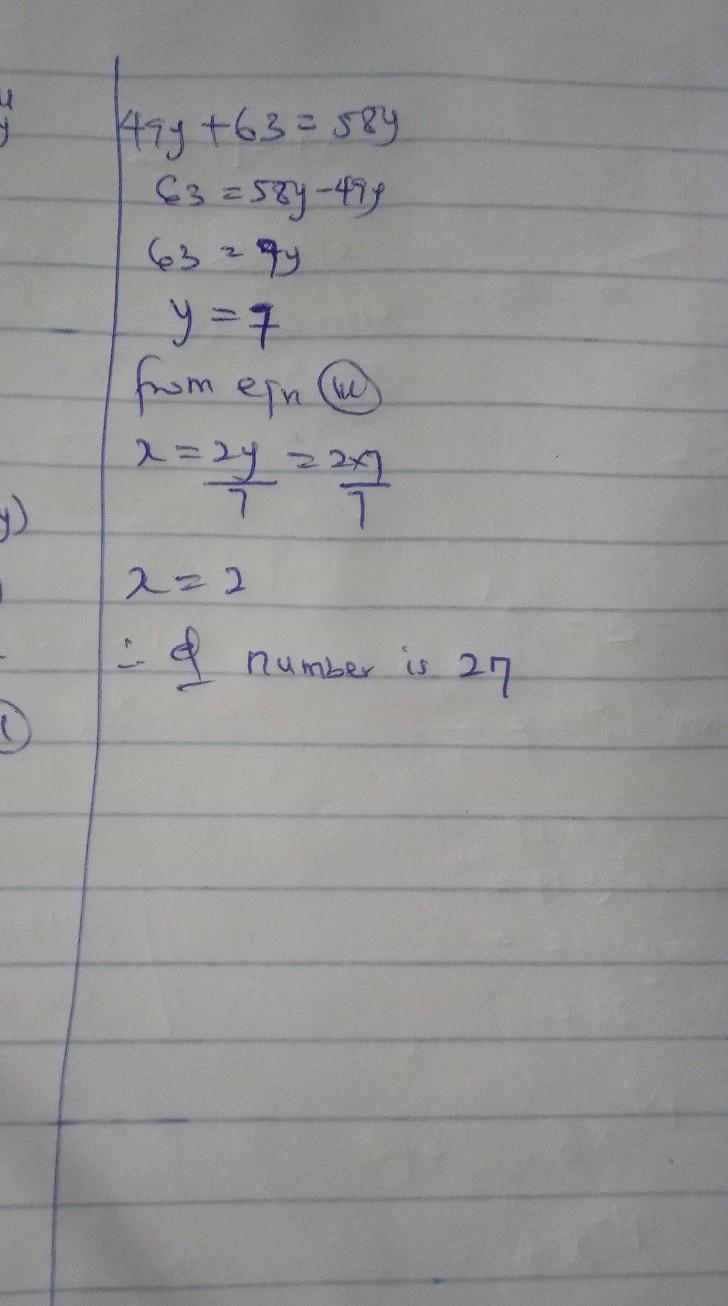 49y + 63 = 58y
63 = 58y - 49y
63 = 9y
y = 7
from eqn (iii)
x = 2y/7 = 2×7/7
x = 2
∴ number is 27